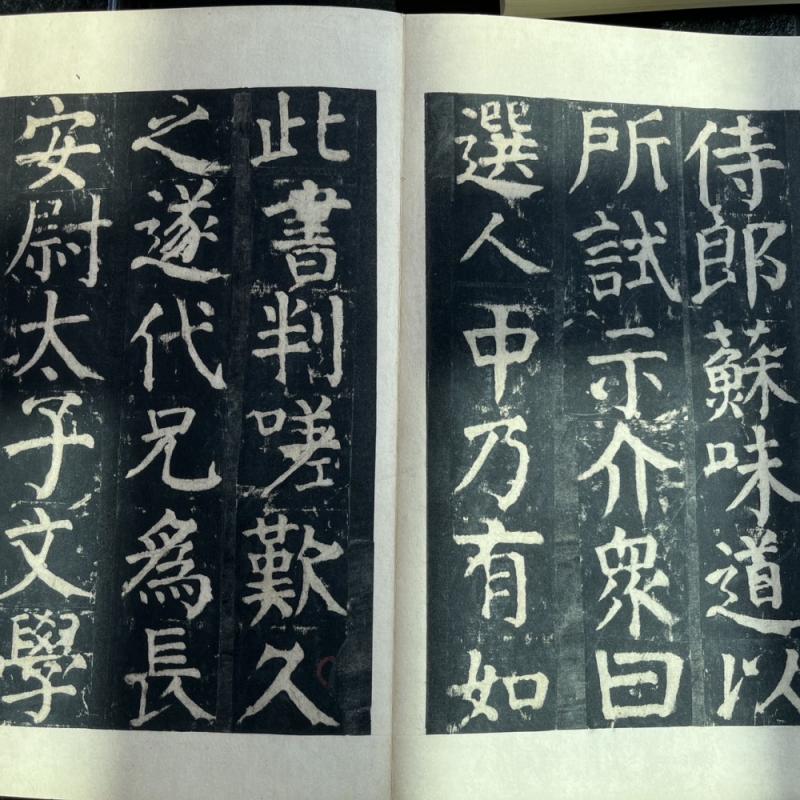 侍郎蘇味道以
所試示介衆曰
選人中乃有如
此書判嗟歎久
之遂代兄為長
安尉太子文學